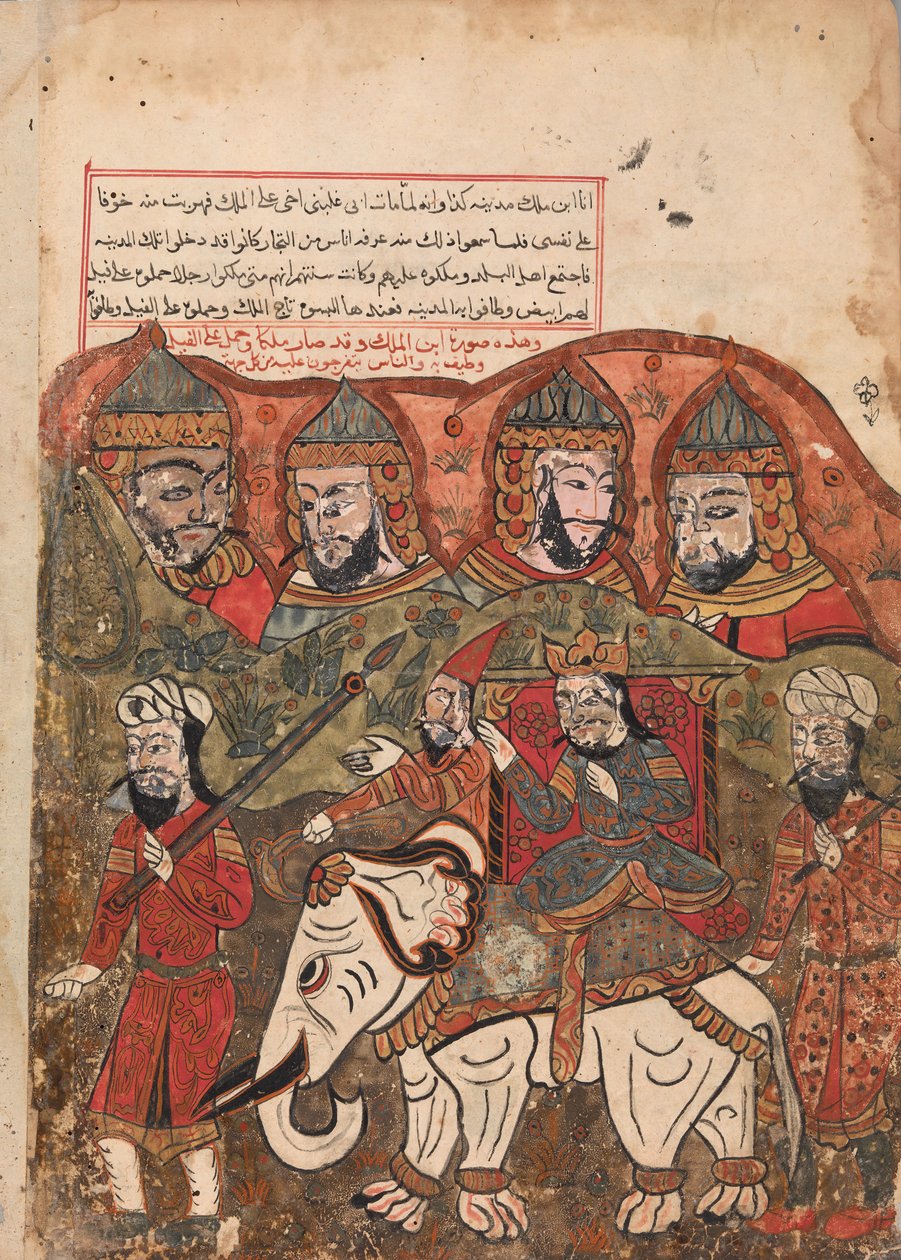 انا ابن ملك مدينه كذا وانه لما مات ابي غلبني اخي على الملك فهربت منه خوفا
على نفسي فلما سمعوا ذلك منه عرفه اناس من التجار كانوا قد دخلوا تلك المدينه
فاجتمع اهل البلد وملكوه عليهم وكانت سنتهم انهم متى ملكوا رجلا حملوه على فيل
لهم ابيض وطافوا به المدينه فعندها البسوه تاج الملك وحملوه على الفيل وطافوا
وهذه صورة ابن الملك وقد صار ملكا وحمل على الفيل
وطيف به والناس يتفرجون عليه من كل جهة